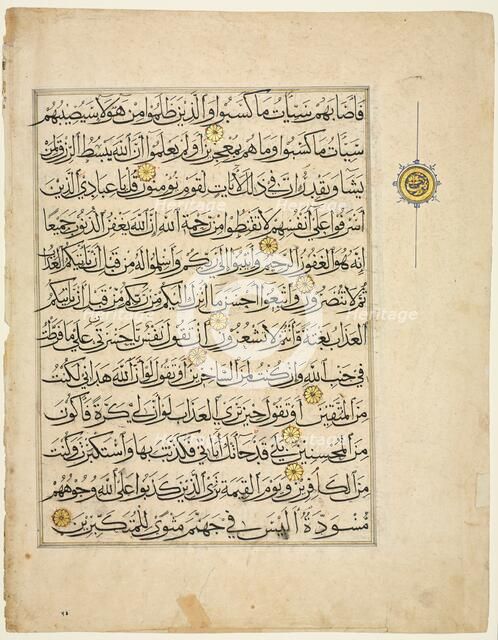 فأصابهم سيئات ما كسبوا والذين ظلموا من هؤلاء سيصيبهم
سيئات ما كسبوا وما هم بمعجزين أولم يعلموا أن الله يبسط الرزق لمن
يشاء ويقدر إن في ذلك لآيات لقوم يؤمنون قل يا عبادي الذين
أسرفوا على أنفسهم لا تقنطوا من رحمة الله إن الله يغفر الذنوب جميعا
إنه هو الغفور الرحيم وأنيبوا إلى ربكم وأسلموا له من قبل أن يأتيكم العذاب
ثم لا تنصرون واتبعوا أحسن ما أنزل إليكم من ربكم من قبل أن يأتيكم
العذاب بغتة وأنتم لا تشعرون أن تقول نفس يا حسرتى على ما فرطت
في جنب الله وإن كنت لمن الساخرين أو تقول لو أن الله هداني لكنت
من المتقين أو تقول حين ترى العذاب لو أن لي كرة فأكون
من المحسنين بلى قد جاءتك آياتي فكذبت بها واستكبرت وكنت
من الكافرين ويوم القيمة ترى الذين كذبوا على الله وجوههم
مسودة أليس في جهنم مثوى للمتكبرين
Heritage Heritage Heritage
Heritage Heritage Heritage